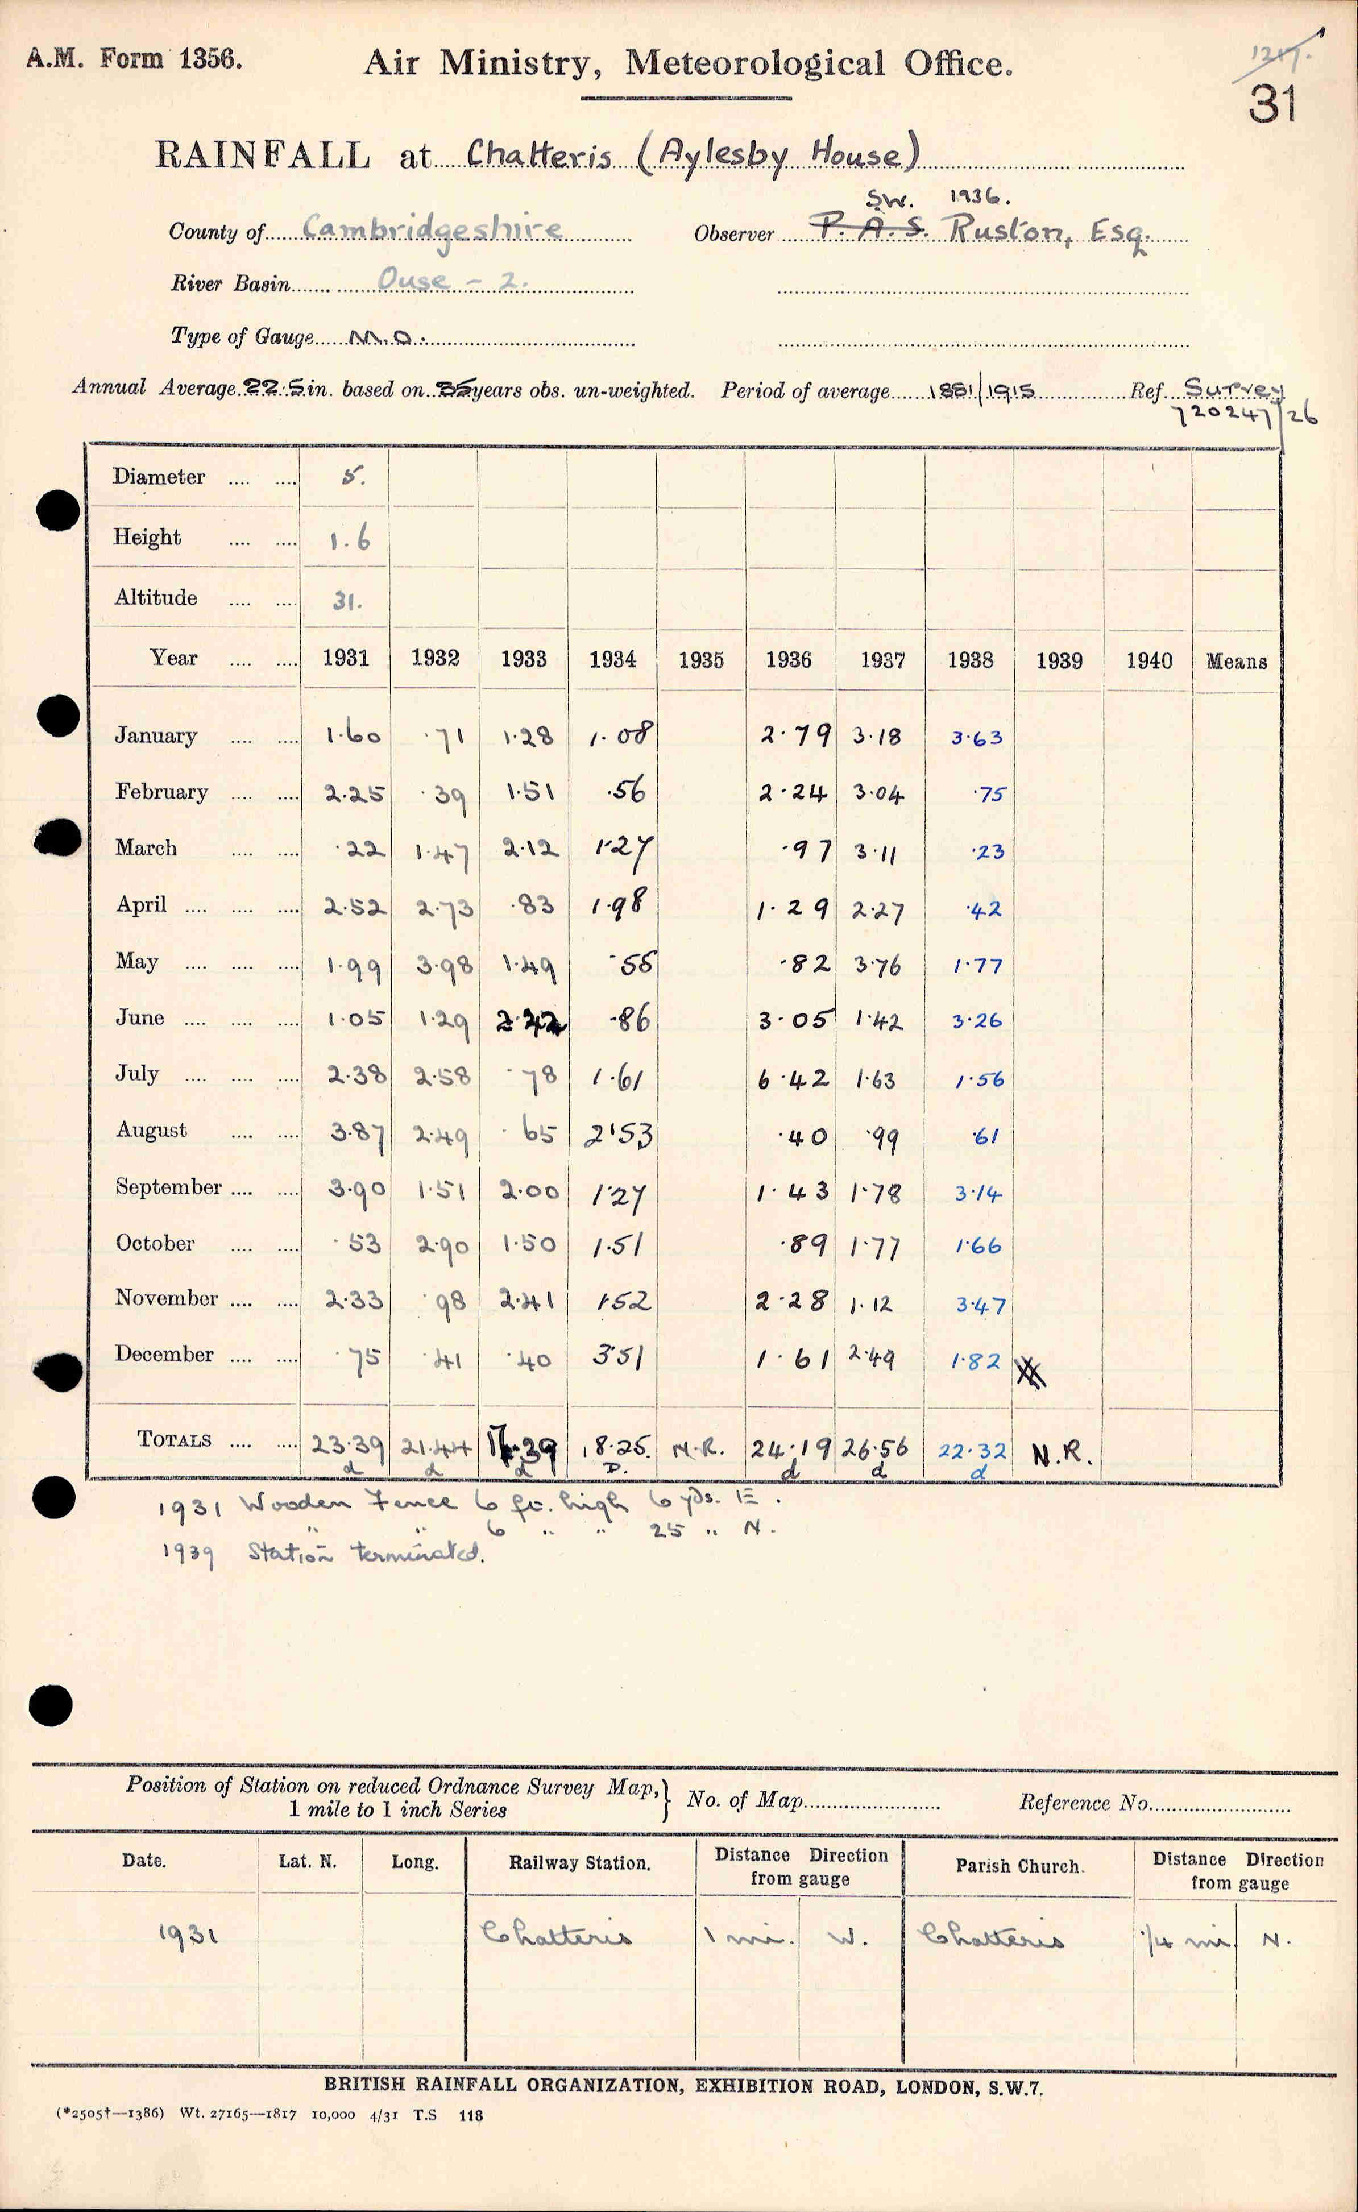 A.M. Form 1356.
Air Ministry, Meteorological Office.
1217.
31
RAINFALL at Chatteris (Aylesby House)
S.W. 1936.
County of Cambridgeshire Observer P. A. S. Ruston, Esq.
River Basin Ouse - 2.
Type of Gauge M.O.
Annual Average 22.5 in. based on 35 years obs. un-weighted. Period of average 1881/1915 Ref. Survey
720247/26
Diameter .... .... 5.
Height .... .... 1.6
Altitude .... .... 31.
Year .... .... 1931 1932 1933 1934 1935 1936 1937 1938 1939 1940 Means
January .... .... 1.60 .71 1.28 1.08 2.79 3.18 3.63
February .... .... 2.25 .39 1.51 .56 2.24 3.04 .75
March .... .... .22 1.47 2.12 1.27 .97 3.11 .23
April .... .... .... 2.52 2.73 .83 1.98 1.29 2.27 .42
May .... .... .... 1.99 3.98 1.49 .55 .82 3.76 1.77
June .... .... .... 1.05 1.29 2.42 .86 3.05 1.42 3.26
July .... .... .... 2.38 2.58 .78 1.61 6.42 1.63 1.56
August .... .... 3.87 2.49 .65 2.53 .40 .99 .61
September .... .... 3.90 1.51 2.00 1.27 1.43 1.78 3.14
October .... .... .53 2.90 1.50 1.51 .89 1.77 1.66
November .... .... 2.33 .98 2.41 1.52 2.28 1.12 3.47
December .... .... .75 .41 .40 3.51 1.61 2.49 1.82
TOTALS .... .... 23.39 21.44 17.39 18.25. N.R. 24.19 26.56 22.32 N.R.
d d d D. d d d
1931 Wooden Fence 6 ft. high 6 yds. E.
" " 6 " " 25 " N.
1939 Station terminated.
Position of Station on reduced Ordnance Survey Map,
1 mile to 1 inch Series } No. of Map Reference No.
Date. Lat. N. Long. Railway Station. Distance Direction from gauge Parish Church. Distance Direction from gauge
1931 Chatteris 1 mi. W. Chatteris 1/4 mi. N.
BRITISH RAINFALL ORGANIZATION, EXHIBITION ROAD, LONDON, S.W.7.
(*2505†—1386) Wt. 27165—1817 10,000 4/31 T.S 118